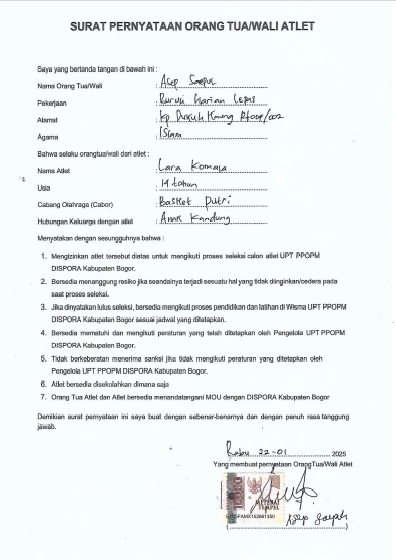 SURAT PERNYATAAN ORANG TUA/WALI ATLET
Saya yang bertanda tangan di bawah ini :
Nama Orang Tua/Wali : Asep Saepul
Pekerjaan : Buruh Harian Lepas
Alamat : Kp Dukuh Kaung Rt004/002
Agama : Islam
Bahwa selaku orangtua/wali dari atlet :
Nama Atlet : Lara Komala
Usia : 14 tahun
Cabang Olahraga (Cabor) : Basket Putri
Hubungan Keluarga dengan atlet : Anak Kandung
Menyatakan dengan sesungguhnya bahwa :
1. Mengizinkan atlet tersebut diatas untuk mengikuti proses seleksi calon atlet UPT PPOPM
DISPORA Kabupaten Bogor.
2. Bersedia menanggung resiko jika seandainya terjadi sesuatu hal yang tidak diinginkan/cedera pada
saat proses seleksi.
3. Jika dinyatakan lulus seleksi, bersedia mengikuti proses pendidikan dan latihan di Wisma UPT PPOPM
DISPORA Kabupaten Bogor sesuai jadwal yang ditetapkan.
4. Bersedia mematuhi dan mengikuti peraturan yang telah ditetapkan oleh Pengelola UPT PPOPM
DISPORA Kabupaten Bogor.
5. Tidak berkeberatan menerima sanksi jika tidak mengikuti peraturan yang ditetapkan oleh
Pengelola UPT PPOPM DISPORA Kabupaten Bogor.
6. Atlet bersedia disekolahkan dimana saja
7. Orang Tua Atlet dan Atlet bersedia menandatangani MOU dengan DISPORA Kabupaten Bogor
Demikian surat pernyataan ini saya buat dengan sebenar-benarnya dan dengan penuh rasa tanggung
jawab.
Rabu, 22-01 2025
Yang membuat pernyataan OrangTua/Wali Atlet
10000
METERAI
TEMPEL
(Asep Saepul)